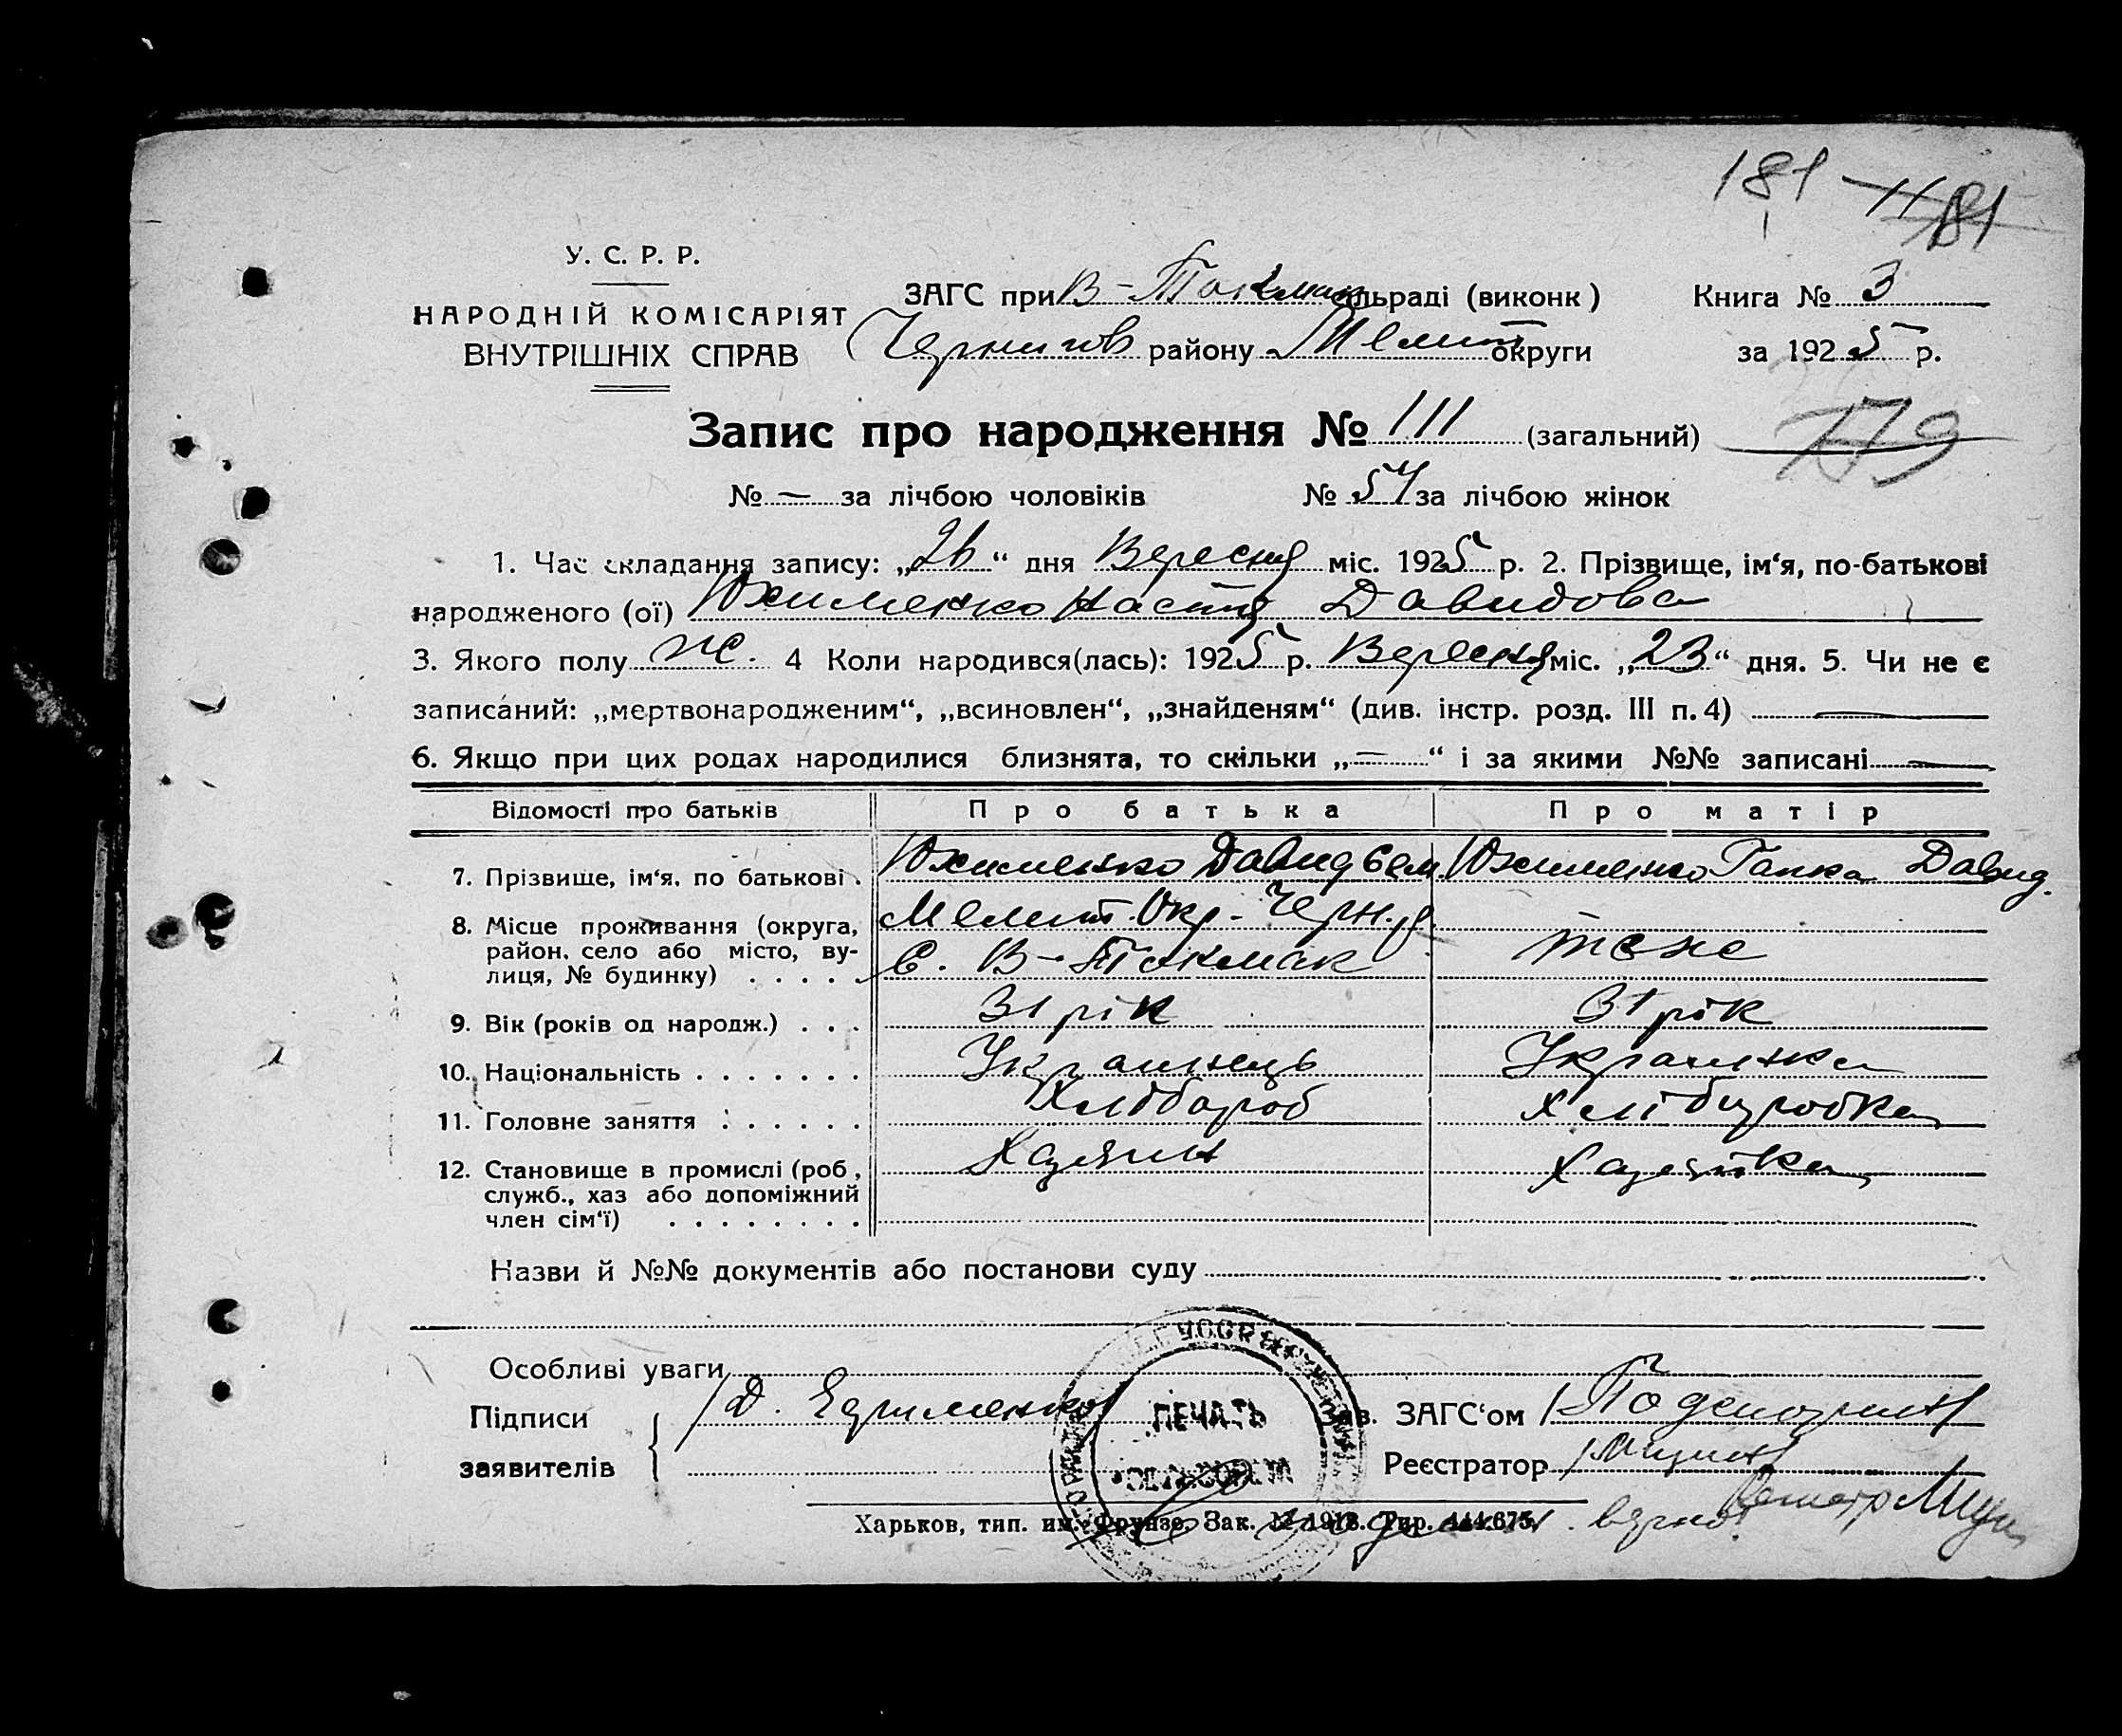 181
У. С. Р. Р.
НАРОДНІЙ КОМІСАРІЯТ
ВНУТРІШНІХ СПРАВ
ЗАГС при В-Токмак сільраді (виконк)
Книга № 3
Чернигов району Меліт округи
за 1925 р.
Запис про народження № 111 (загальний)
179
№ — за лічбою чоловіків № 54 за лічбою жінок
1. Час складання запису: „26“ дня Вересня міс. 1925 р. 2. Прізвище, ім‘я, по-батькові
народженого (ої) Юхименко Настя Давидова
3. Якого полу ж. 4 Коли народився(лась): 1925 р. Вересня міс. „23“ дня. 5. Чи не є
записаний: „мертвонародженим“, „всиновлен“, „знайденям“ (див. інстр. розд. III п. 4) —
6. Якщо при цих родах народилися близнята, то скільки „—“ і за якими №№ записані —
Відомості про батьків Про батька Про матір
7. Прізвище, ім‘я, по батькові . Юхименко Давид Сем. Юхименко Гапка Давид.
8. Місце проживання (округа, район, село або місто, вулиця, № будинку) . . . . .
Мелит. Окр. Черн. р.
С. В-Токмак
тоже
9. Вік (років од народж.) . . . 31 рік 31 рік
10. Національність . . . . . . . Украинець Украинка
11. Головне заняття . . . . . . Хлібороб Хліборобка
12. Становище в промислі (роб, служб., хаз або допоміжний член сім‘ї) . . . . . . . .
Хазяин Хазяйка
Назви й №№ документів або постанови суду
Особливі уваги
Підписи
заявителів
Д. Ефименко
ПЕЧАТЬ
Зав. ЗАГС‘ом
Реєстратор
Харьков, тип. им. Фрунзе. Зак. № 1918. Тир. 444.675.
верно: